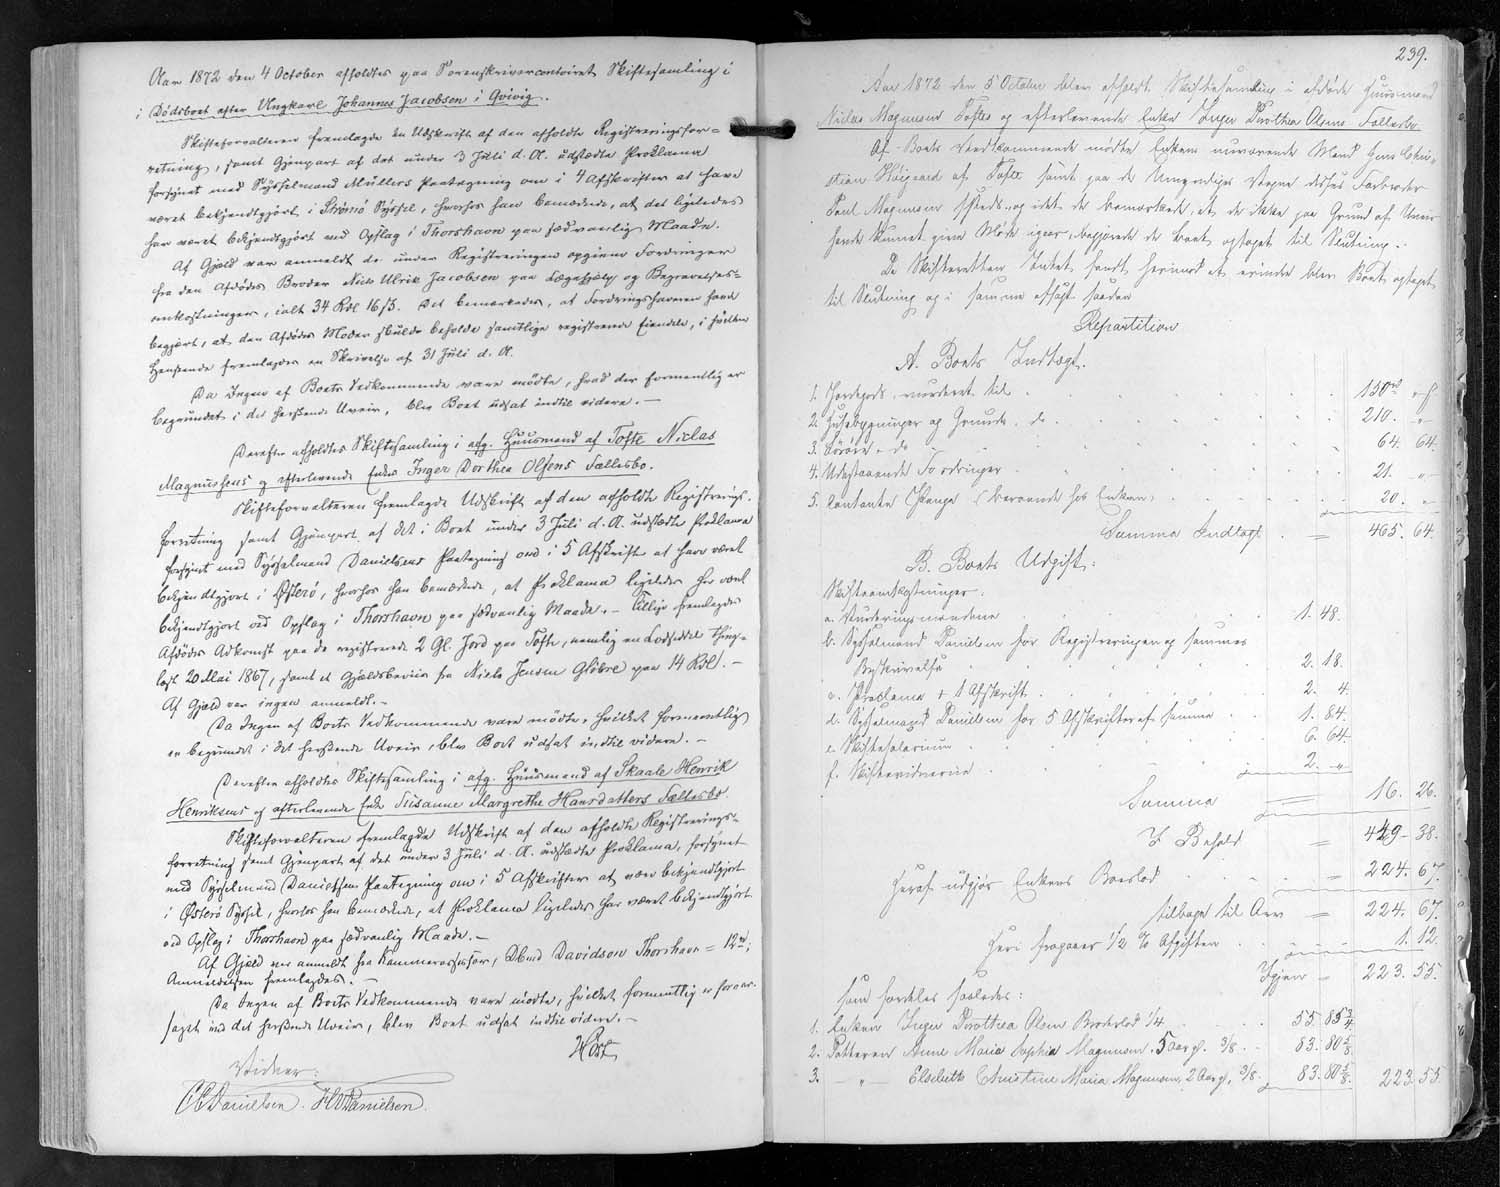 Aar 1872 den 4 October afholdtes paa Sorenskrivercontoiret Skiftesamling i
i Dødsboet efter Ungkarl Johannes Jacobsen i Qvivig.
Skifteforvalteren fremlagde en Udskrift af den afholdte Registreringsfor=
retning, samt Gjenpart af det under 3 Juli d. A. udstædte Proklama
forsynet med Sysselmand Müllers Paategning om i 4 Afskrifter at have
været bekjendtgjort i Strømø Syssel, hvorhos han bemærkede, at det ligeledes
har været bekjendtgjort ved Opslag i Thorshavn paa sædvanlig Maade.
Af Gjæld var anmeldt de under Registreringen opgivne Fordringer
fra den Afdødes Broder Niels Ulrik Jacobsen paa Lægehjælp og Begravelses=
omkostninger, ialt 34 Rdl 16 ß. Det bemærkedes, at Fordringshaveren havde
begjært, at den Afdødes Moder skulde beholde samtlige registrerede Eiendele, i hvilken
Henseende fremlagdes en Skrivelse af 31 Juli d. A.
Da Ingen af Boets Vedkommende vare mødte, hvad der formentlig er
begrundet i det herskende Uveir, blev Boet udsat indtil videre. —
Derefter afholdtes Skiftesamling i afg. Huusmand af Tofte Niclas
Magnussens og efterlevende Enke Inger Dorthea Olsens Fællesbo.
Skifteforvalteren fremlagde Udskrift af den afholdte Registrerings-
forretning samt Gjenpart af det i Boet under 3 Juli d. A. udstædte Proklama
forsynet med Sysselmand Danielsens Paategning om i 5 Afskrift at have været
bekjendtgjort i Østerø, hvorhos han bemærkede, at Proklama ligeledes har været
bekjendtgjort ved Opslag i Thorshavn paa sædvanlig Maade. — Tillige fremlagdes
Afdødes Adkomst paa de registrerede 2 Gl. Jord paa Tofte, nemlig en Lodseddel thing=
læst 20 Mai 1867, samt et Gjældsbeviis fra Niels Jensen Glibre paa 14 Rdl. —
Af Gjæld var ingen anmeldt. —
Da Ingen af Boets Vedkommende vare mødte, hvilket formeentlig
er begrundet i det herskende Uveir, blev Boet udsat indtil videre. —
Derefter afholdtes Skiftesamling i afg. Huusmand af Skaale Henrik
Henriksens og efterlevende Enke Susanne Margrethe Hansdatters Fællesbo.
Skifteforvalteren fremlagde Udskrift af den afholdte Registrerings-
forretning samt Gjenpart af det under 3 Juli d. A. udstædte Proklama, forsynet
med Sysselmand Danielsens Paategning om i 5 Afskrifter at være bekjendtgjort
i Østerø Syssel, hvorhos han bemærkede, at Proklama ligeledes har været bekjendtgjort
ved Opslag i Thorshavn paa sædvanlig Maade. —
Af Gjæld var anmeldt fra Kammerassessor, Dbmd Davidson Thorshavn = 12 rd;
Anmeldelsen fremlagdes. —
Da Ingen af Boets Vedkommende vare mødte, hvilket formentlig er foraar-
saget ved det herskende Uveir, blev Boet udsat indtil videre. —
Vidner:
C Danielsen. HODanielsen.
239.
Aar 1872 den 5 October blev afholdt Skiftesamling i afdøde Huusmand
Niclas Magnussen Toftes og efterlevende Enke Inger Dorothea Olsens Fællesbo
Af Boets Vedkommende mødte Enkens nuværende Mand Hans Chri-
stian Højgaard af Tofte samt paa de Umyndiges Vegne disses Farbroder
Poul Magnussen ssteds, og idet de bemærkede, at de ikke paa Grund af Uveir
havde kunnet give Møde igaar, begjærede de Boet optaget til Slutning.
Da Skifteretten Intet fandt herimod at erindre blev Boet optaget
til Slutning og i samme afsagt saadan
Repartition
A. Boets Indtægt.
1. Jordegods, vurderet til 150 rd " ß
2. Huusbygninger og Grunde, do 210. "
3. Løsøre, do 64. 64.
4. Udestaaende Fordringer 21. "
5. Contante Penge (beroende hos Enken) 20. "
Summa Indtægt = 465. 64.
B. Boets Udgift:
Skifteomkostninger:
a. Vurderingsmændene 1. 48.
b. Sysselmand Danielsen for Registreringen og sammes
Beskrivelse 2. 18.
c. Proclama + 1 Afskrift 2. 4.
d. Sysselmand Danielsen for 5 Afskrifter af samme 1. 84.
e. Skiftesalarium 6. 64.
f. Skiftevidnerne 2. "
Summa = 16. 26.
I Behold = 449 – 38.
Heraf udgjør Enkens Boeslod 224. 67.
tilbage til Arv = 224. 67.
Heri fragaaer 1/2 % Afgiften 1. 12.
Igjen = 223. 55.
som fordeles saaledes:
1. Enken Inger Dorothea Olsen Broderlod 1/4 55. 85 3/4
2. Datteren Anne Maria Sophia Magnussen, 5 Aar gl. 3/8 83. 80 5/8
3. — " — Elsebeth Christine Maria Magnussen, 2 Aar gl. 3/8 83. 80 5/8. 223. 55